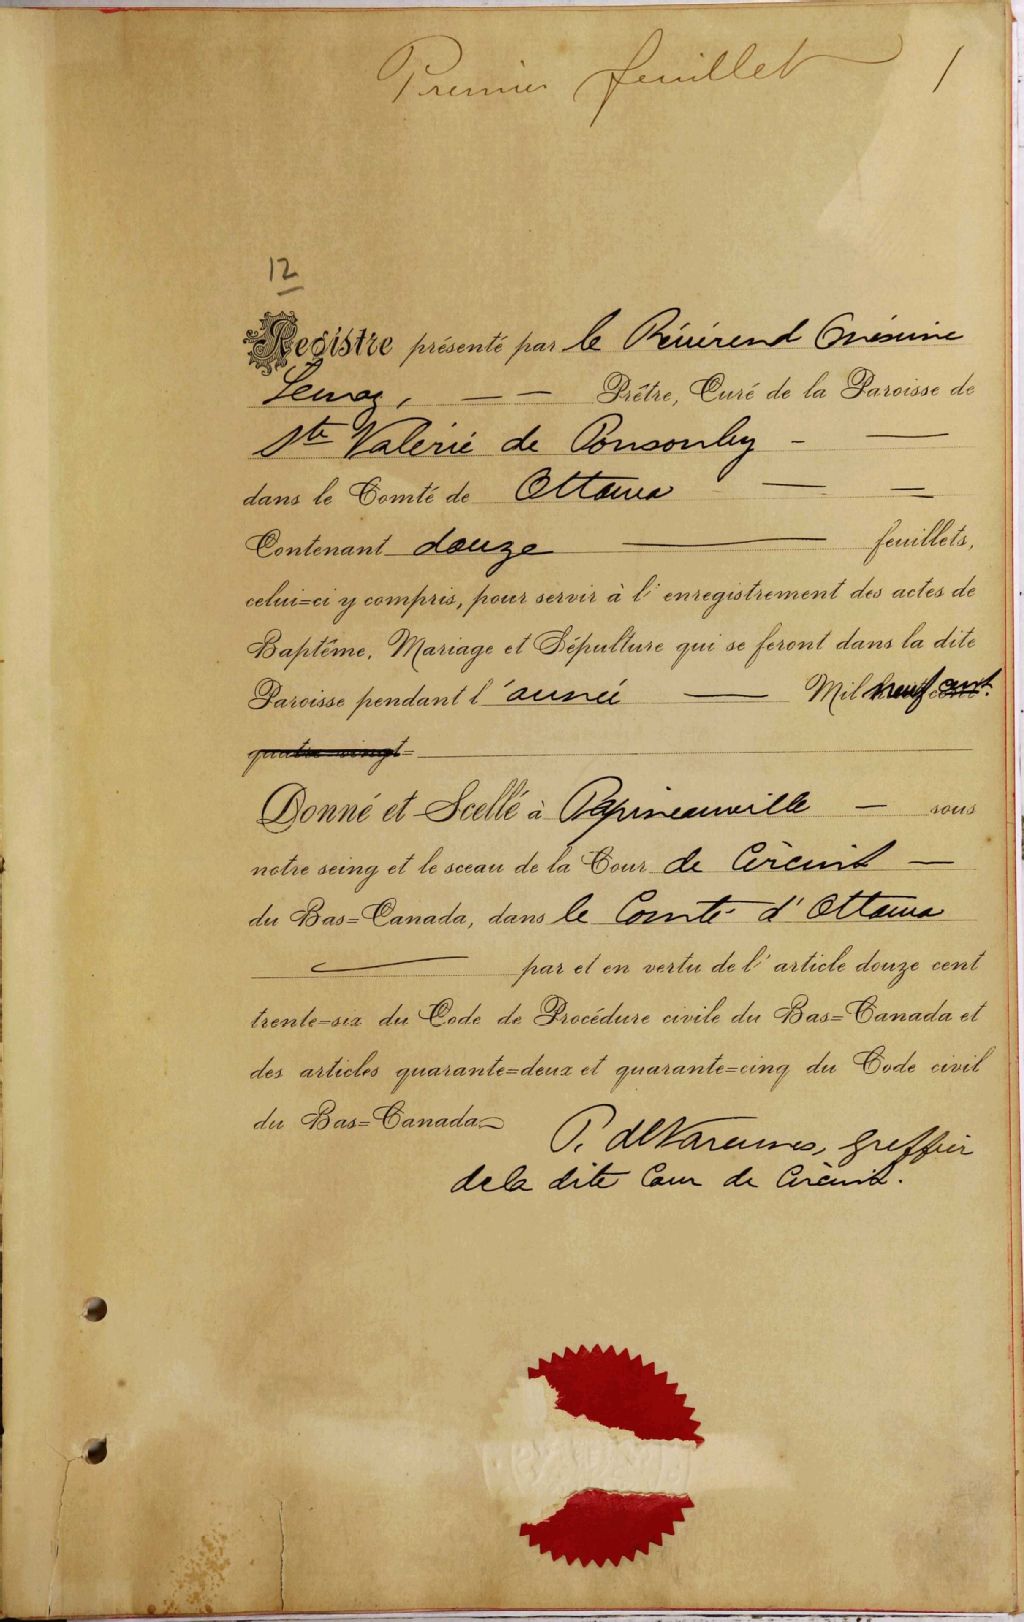 Premier feuillet 1
12
Registre présenté par le Révérend Onésime
Lemay, Prêtre, Curé de la Paroisse de
Ste Valérie de Ponsonby
dans le Comté de Ottawa
Contenant douze feuillets,
celui=ci y compris, pour servir à l'enregistrement des actes de
Baptême, Mariage et Sépulture qui se feront dans la dite
Paroisse pendant l'année Mil neuf cent.
quatre-vingt=
Donné et Scellé à Papineauville sous
notre seing et le sceau de la Cour de Circuit
du Bas=Canada, dans le Comté d'Ottawa
par et en vertu de l'article douze cent
trente=six du Code de Procédure civile du Bas=Canada et
des articles quarante=deux et quarante=cinq du Code civil
du Bas=Canada.
P. deVarennes, Greffier
de la dite Cour de Circuit.